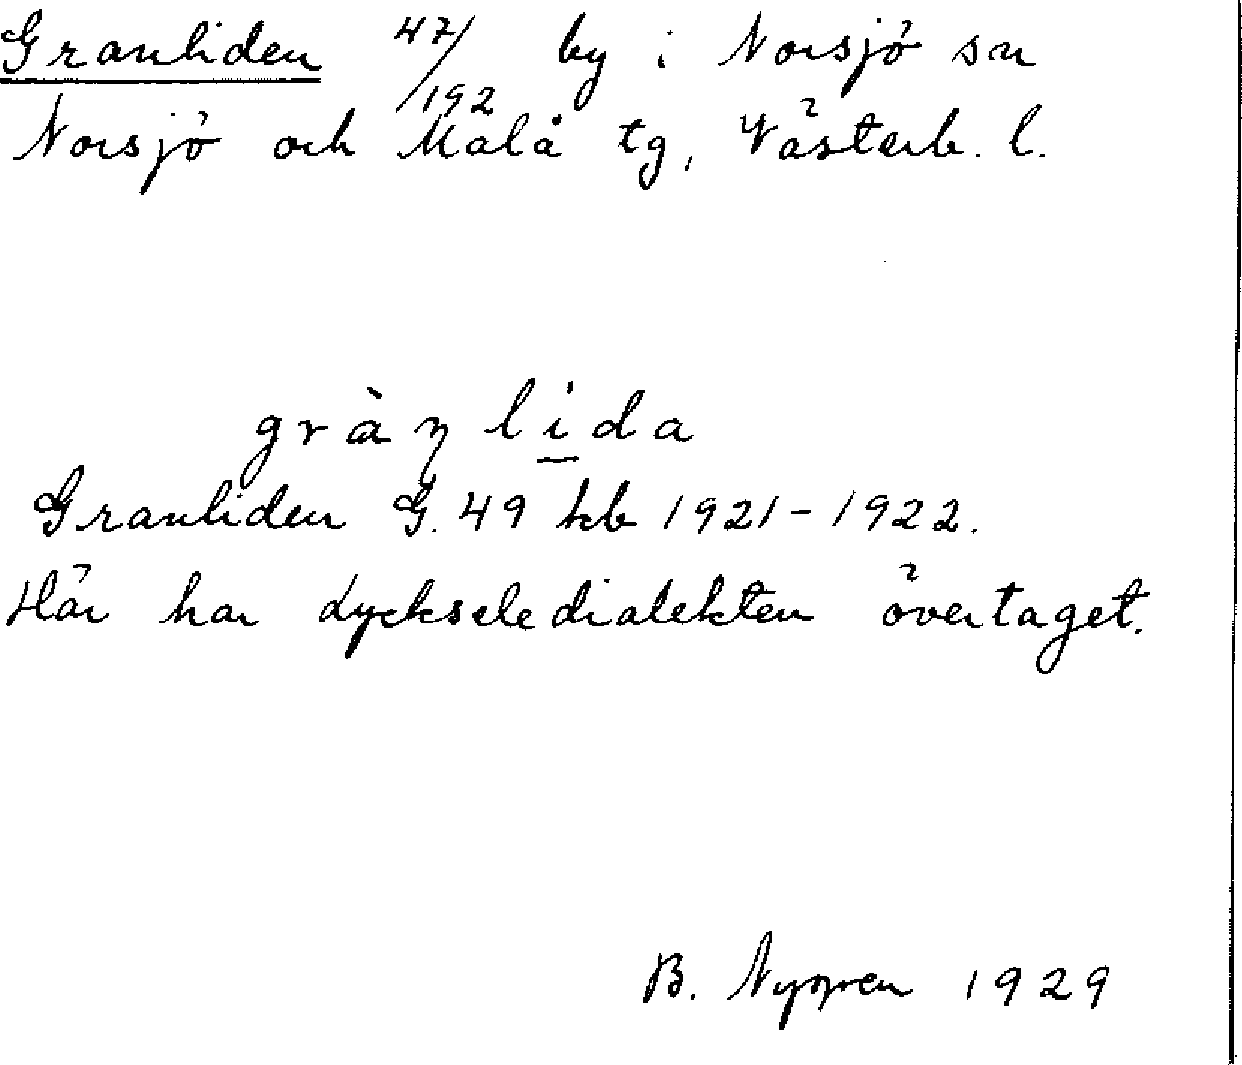 Granliden 47/192 by i Norsjö sn
Norsjö och Malå tg, Västerb. l.
gràn lida
Granliden G. 49 kb 1921-1922.
Här har Lycksele dialekten övertaget.
B. 1929